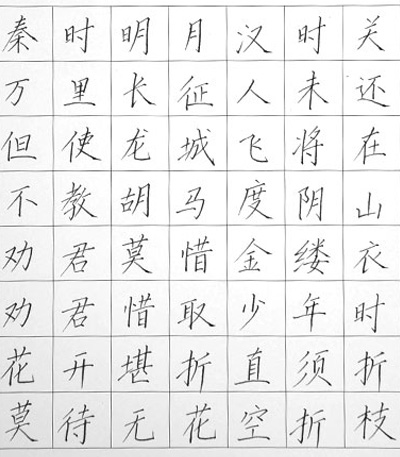 秦时明月汉时关
万里长征人未还
但使龙城飞将在
不教胡马度阴山
劝君莫惜金缕衣
劝君惜取少年时
花开堪折直须折
莫待无花空折枝